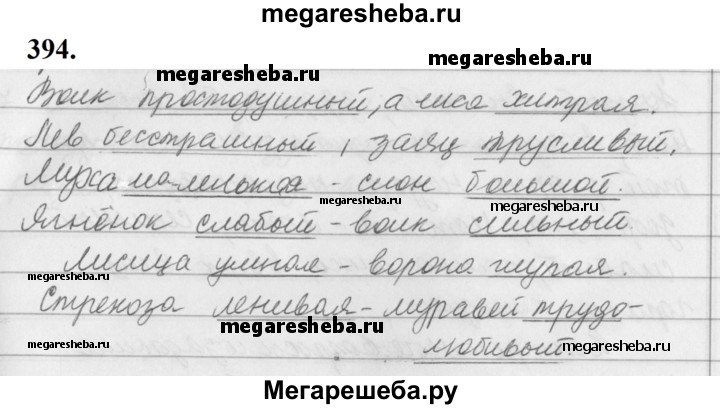 megaresheba.ru
394.
megaresheba.ru megaresheba.ru
Волк простодушный, а лиса хитрая.
Лев бесстрашный, заяц трусливый.
Муха маленькая - слон большой.
megaresheba.ru megaresheba.ru
Ягнёнок слабый - волк сильный.
Лисица умная - ворона глупая.
megaresheba.ru megaresheba.ru
Стрекоза ленивая - муравей трудо-
megaresheba.ru megaresheba.ru megaresheba.ru
любивый.
Мегарешеба.ру